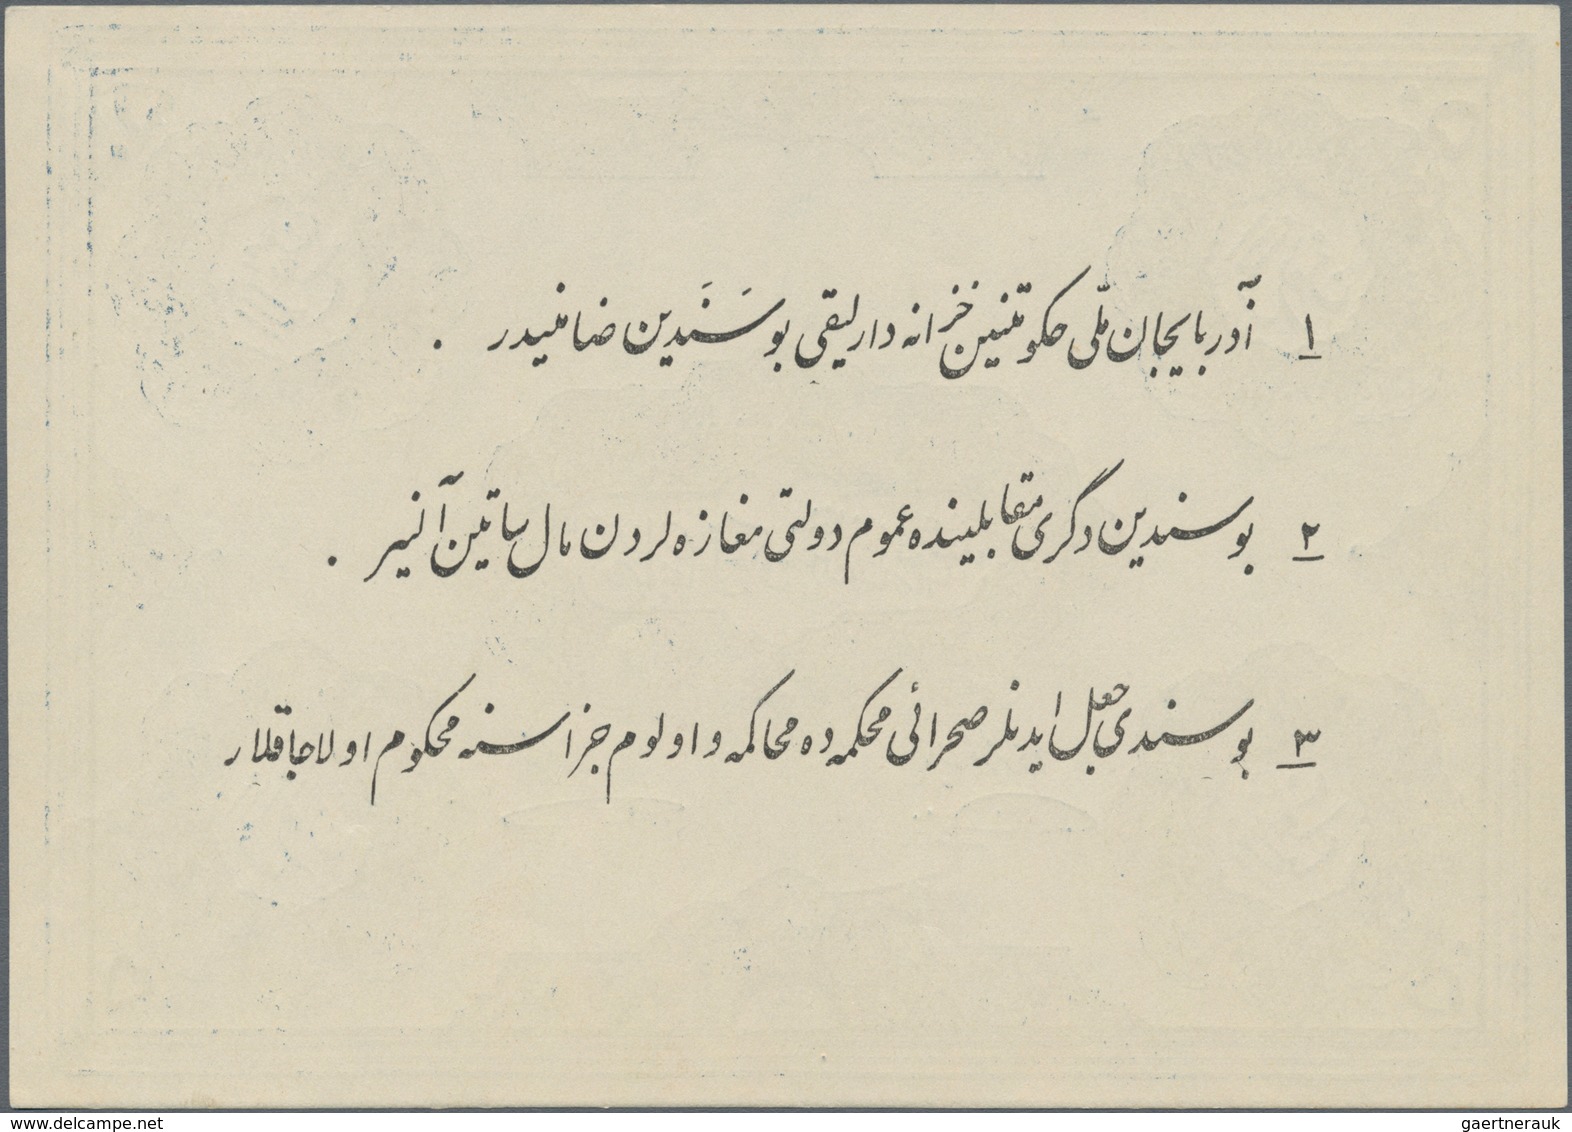 ۱ آذربایجان ملّی حکومتنین خزانه دارلیقی بو سَنَدین ضامنیدر .
۲ بو سندین دگری مقابلینده عموم دولتی مغازه لردن مال ساتین آلنیر .
۳ بو سندی جعل ایدنلر صحرائی محکمه ده محاکمه و اولوم جزاسنه محکوم اولاجاقلار
www.delcampe.net
gaertnerauk